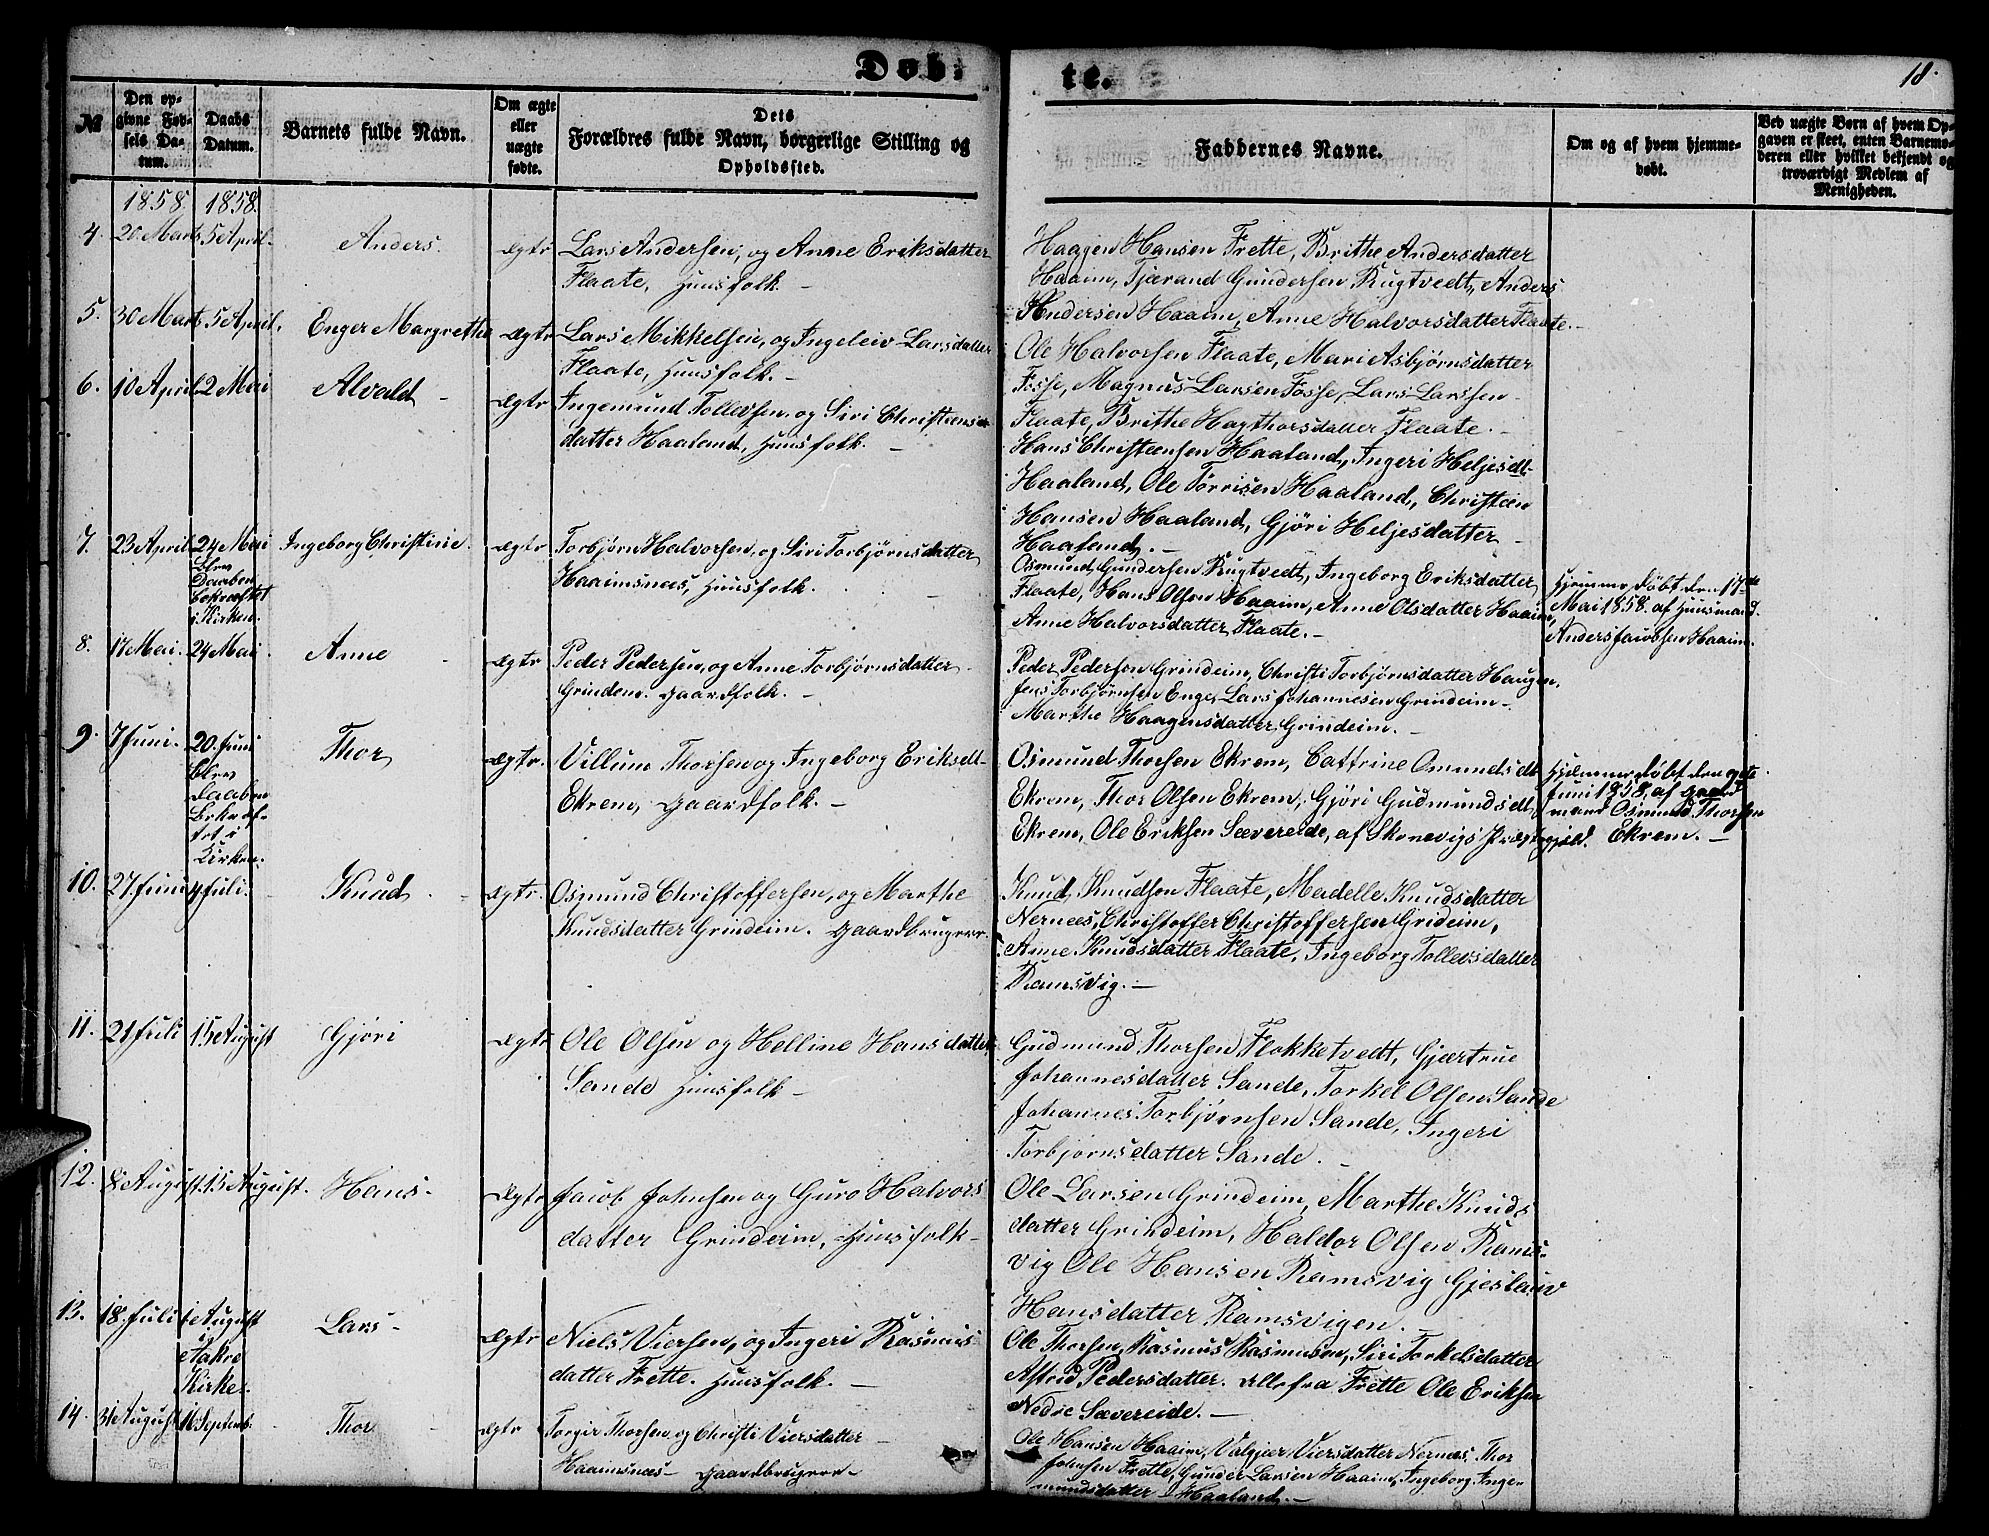 Døb-
te.
18.
№
Den op-
givne Fød-
sels Da-
tum.
Daabs
Datum.
Barnets fulde Navn.
Om ægte
eller
uægte
fødte.
Dets
Forældres fulde Navn, borgerlige Stilling og
Opholdssted.
Faddernes Navne.
Om og af hvem hjemme-
døbt.
Ved uægte Børn af hvem Op-
gaven er skeet, enten Barnemo-
deren eller hvilket bekjendt og
troværdigt Medlem af
Menigheden.
1858. 1858.
4. 20 Marts 5 April. Anders. Ægte Lars Andersen, og Anne Eriksdatter
Flaate, Huusfolk. -
Haagen Hansen Frette, Brithe Andersdatter
Haaim, Tjærand Gundersen Rugtvedt, Anders
Andersen Haaim, Anne Halvorsdatter Flaate. -
5. 30 Marts 5 April. Enger Margrethe Ægte Lars Mikkelsen, og Ingeleiv Larsdatter
Flaate, Huusfolk. -
Ole Halvorsen Flaate, Mari Asbjørnsdatter
Fosse, Magnus Larsen Fosse, Lars Larssen
Flaate, Brithe Hagthorsdatter Flaate. -
6. 10 April 2 Mai Alvald - Ægte Ingemund Tollevsen, og Siri Christens-
datter Haaland, Huusfolk. -
Hans Christensen Haaland, Ingeri Heljesdt-
Haaland, Ole Torrisen Haaland, Christen
Hansen Haaland, Gjøri Heljesdatter
Haaland. -
7. 23 April 24 Mai Ingeborg Christine. Ægte Torbjørn Halvorsen, og Siri Torbjørnsdatter
Blev
Daaben
bekræftet
i Kirken.
Haaimsnæs, Huusfolk. -
Osmund Gundersen Rugtvedt, Ingeborg Eriksdatter
Flaate, Hans Olsen Haaim, Anne Olsdatter Haaim,
Anne Halvorsdatter Flaate. -
Hjemmedøbt den 17de
Mai 1858. af Huusmand.
Anders Jacobsen Haaim.
8. 17 Mai. 24 Mai. Anne - Ægte Peder Pedersen, og Anne Torbjørnsdatter
Grindem. Gaardfolk. -
Peder Pedersen Grindeim, Christi Torbjørnsdatter Haugen,
Jens Torbjørnsen Enge, Lars Johannesen Grindeim-
Marthe Haagensdatter Grindeim. -
9. 7 Juni. 20. Juni Thor Ægte. Villum Thorsen og Ingeborg Eriksdt-
Blev
Daaben
bekræf-
tet i
Kirken.
Ekrem, Gaardfolk. -
Osmund Thorsen Ekrem, Cattrine Omundsdt
Ekrem, Thor Olsen Ekrem, Gjøri Gudmundsdt,
Ekrem, Ole Eriksen Sævereide, af Skonevigs Præstegjeld.
Hjemmedøbt den 9de
Juni 1858. af Gaard
mand Osmund Thorsen
Ekrem. -
10. 27 Juni 4 Juli. Knud - Ægte. Osmund Christoffersen, og Marthe
Knudsdatter Grindeim. Gaardbrugere.
Knud Knudsen Flaate, Madelle Knudsdatter
Nernæs, Christoffer Christoffersen Grideim,
Anne Knudsdatter Flaate, Ingeborg Tollevsdatter
Ramsvig. -
11. 21 Juli 15 August Gjøri Ægte Ole Olsen og Helline Hansdatter
Sande Huusfolk -
Gudmund Thorsen Flokketvedt, Gjærtrue
Johannesdatter Sande, Torkel Olsen Sande
Johannes Torbjørnsen Sande, Ingeri
Torbjørnsdatter Sande. -
12. 8 August. 15 August. Hans. Ægte Jacob Johnsen og Guro Halvors
datter Grindeim, Huusfolk -
Ole Larsen Grindeim, Marthe Knuds
datter Grindeim, Haldor Olsen Rams-
vig Ole Hansen Ramsvig Gjeslauv
Hansdatter Ramsvigen.
13. 18. Juli 1 August Lars - Ægte Niels Viersen, og Ingeri Rasmus-
i
Aakre
Kirke.
datter Frette. Huusfolk. -
Ole Thorsen, Rasmus Rasmusen, Siri Torkelsdatter
Astrid Pedersdatter. Alle fra Frette Ole Eriksen
Nedre Sævereide. -
14. 31 August 16 Septemb. Thor - Ægte Torgir Thorsen og Christi Viersdatter -
Haaimsnæs - Gaardbrugere -
Ole Hansen Haaim, Valgjer Viersdatter Nernæs, Thor
Johnsen Frette, Gunder Larsen Haaim, Ingeborg Inge-
mundsdatter - Haaland. -